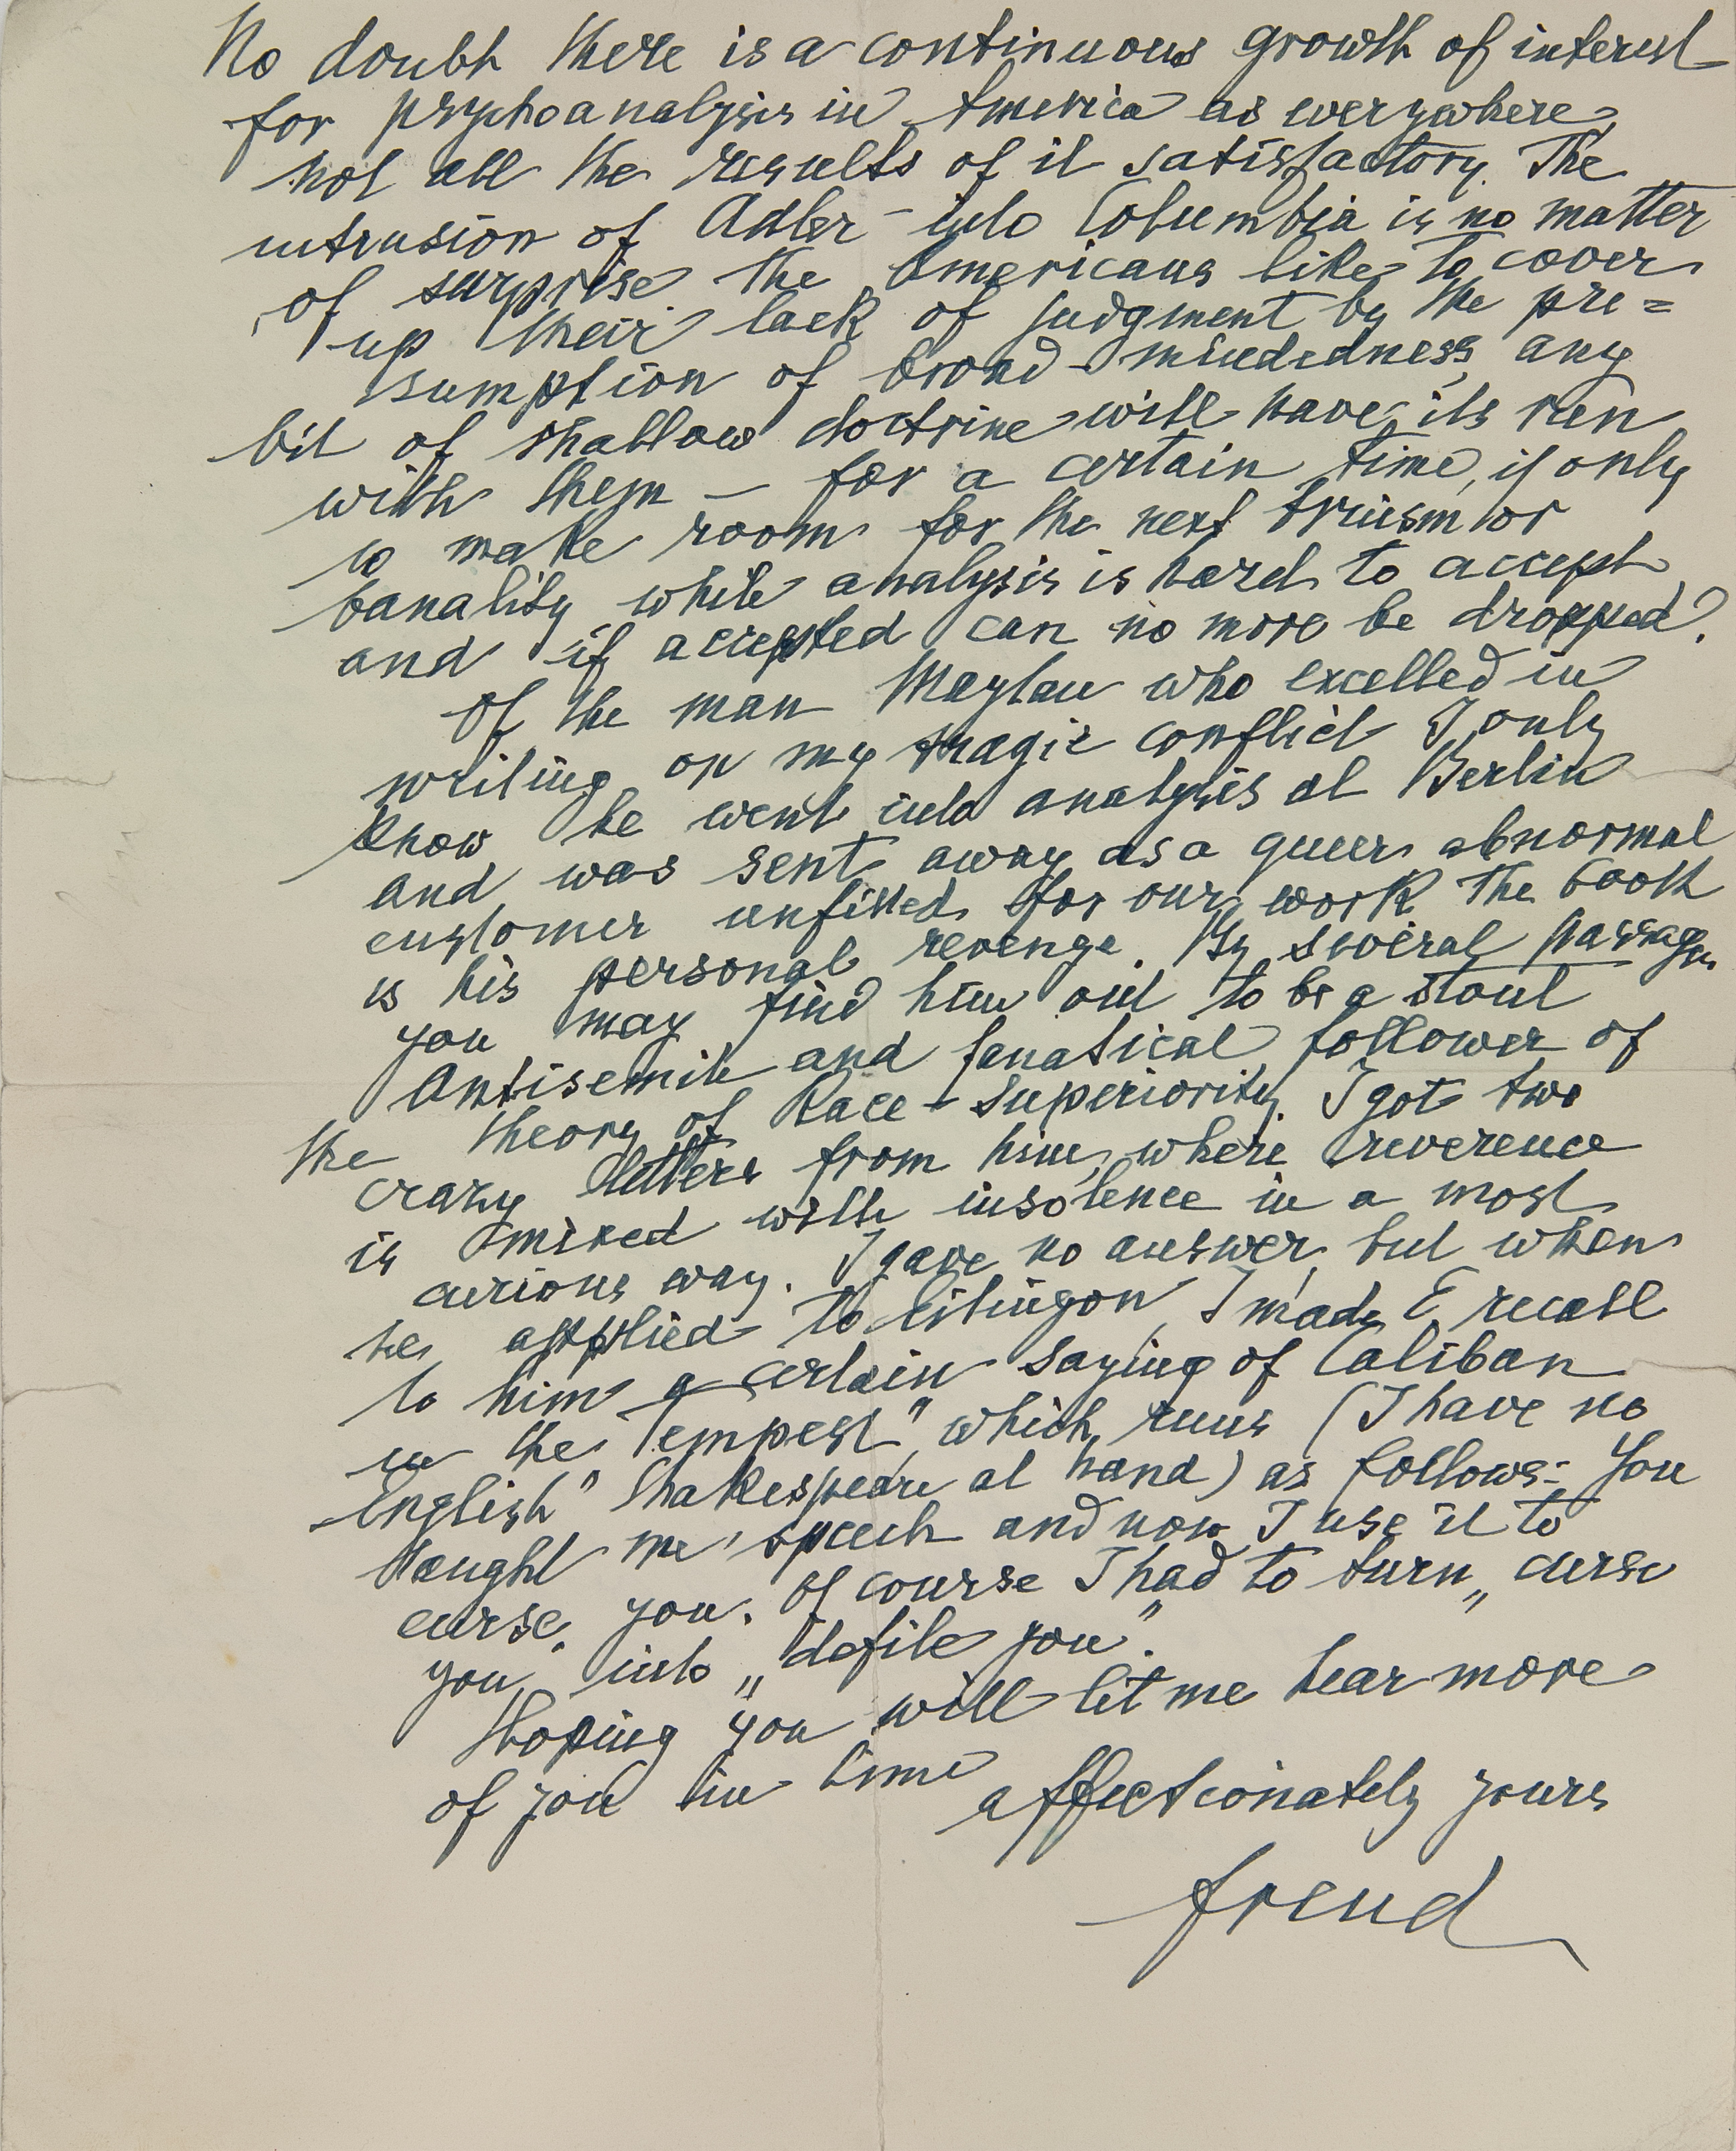 No doubt there is a continuous growth of interest
for psychoanalysis in America as everywhere,
not all the results of it satisfactory. The
intrusion of Adler into Columbia is no matter
of surprise. The Americans like to cover
up their lack of judgment by the pre=
sumption of broad-mindedness, any
bit of shallow doctrine will have its run
with them – for a certain time, if only
to make room for the next truism or
banality while analysis is hard to accept
and if accepted can no more be dropped.
Of the man Maylan who excelled in
writing on my tragic conflict I only
know he went into analysis at Berlin
and was sent away as a queer abnormal
customer unfitted for our work. The book
is his personal revenge. By several passages
you may find him out to be a stout
Antisemite and fanatical follower of
the theory of Race-Superiority. I got two
crazy letters from him, where reverence
is mixed with insolence in a most
curious way. I gave no answer, but when
he applied to Eitingon, I made E recall
to him a certain saying of Caliban
in the "Tempest", which runs (I have no
English Shakespeare at hand) as follows: You
taught me speech and now I use it to
curse you. Of course I had to turn „curse
you" into „defile you".
Hoping you will let me hear more
of you in time
affectionately yours
Freud